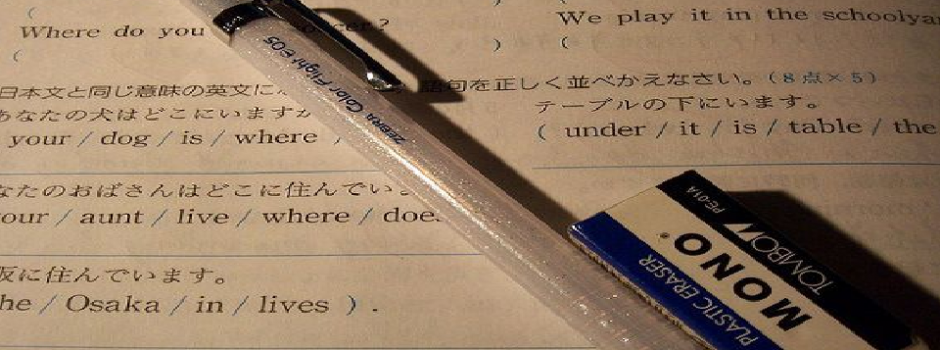 Where do you
(
We play it in the
) (
日本文と同じ意味の英文に
語句を正しく並べかえなさい。(8点×5)
あなたの犬はどこにいますか
your / dog / is / where
テーブルの下にいます。
( under / it / is / table / the
なたのおばさんはどこに住んでい
your / aunt / live / where /
阪に住んでいます。
he / Osaka / in / lives ) .
ZEBRA Color Flight 0.5
PE-01A
TOMBOW
MONO
PLASTIC ERASER